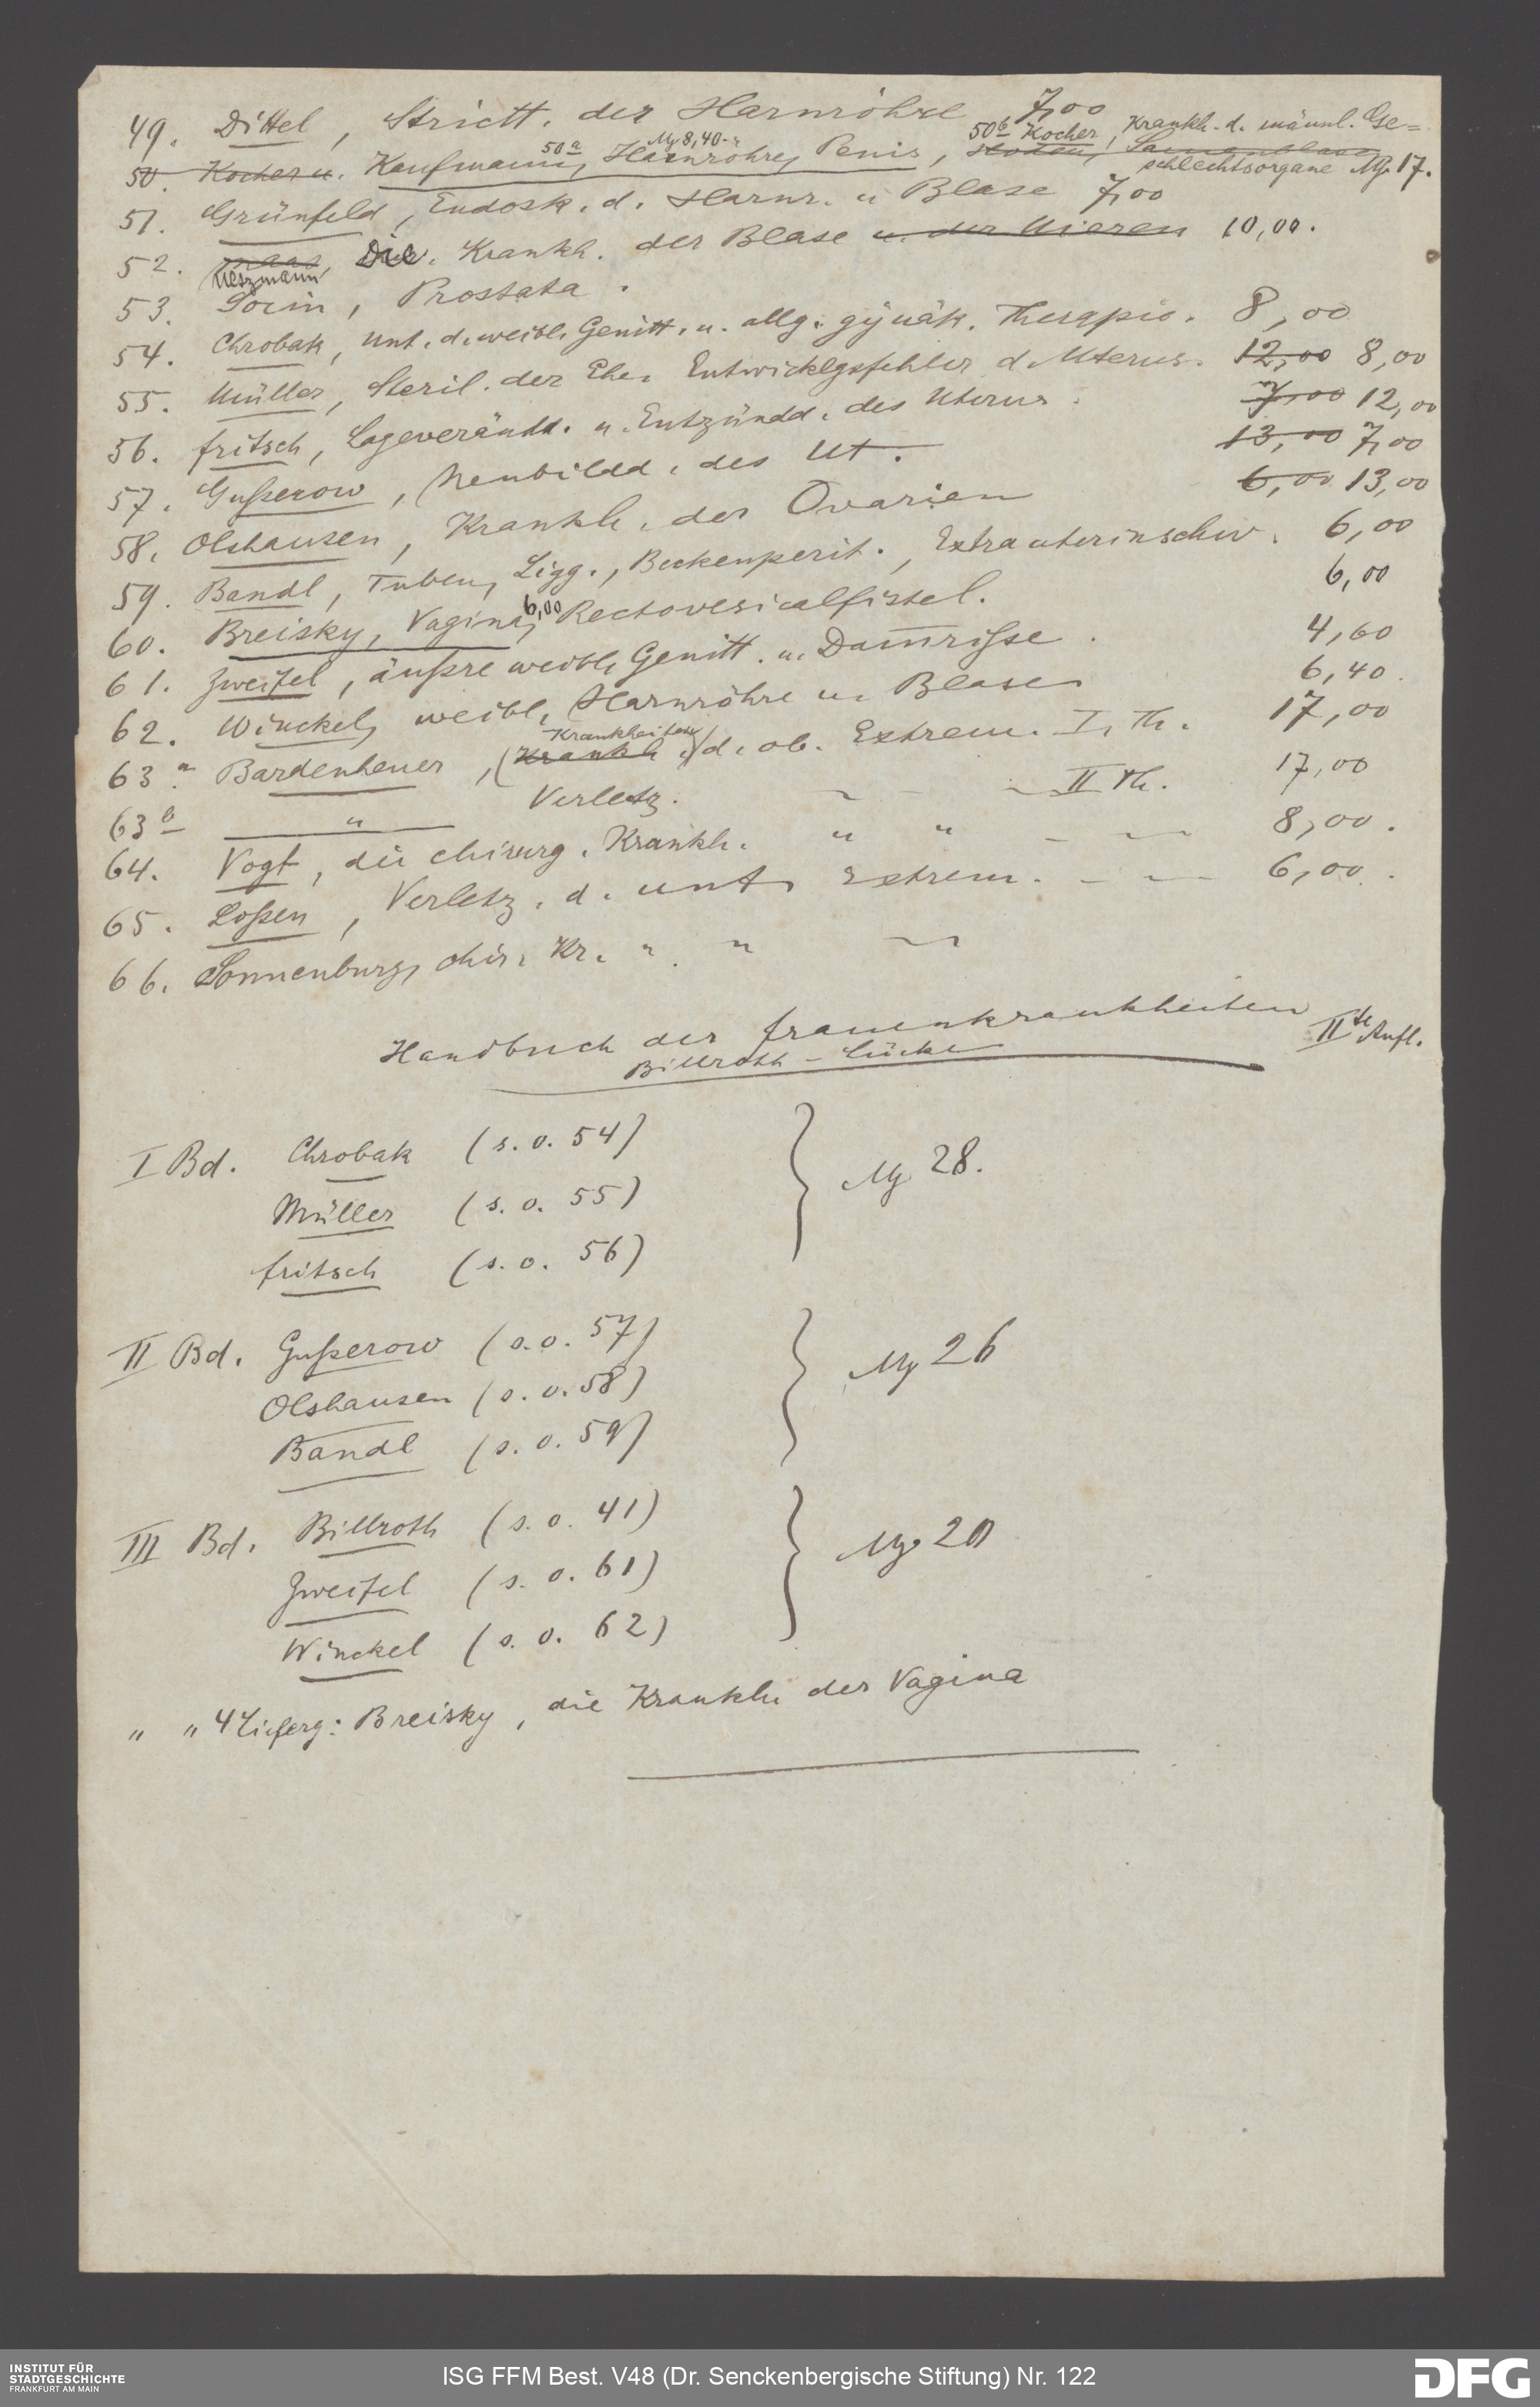 49. Dittel, Strictt. der Harnröhre 7,00
50b Kocher, Krankh. d. männl. Ge=
50a M 8,40
50. Kocher u. Kaufmann, Harnröhre, Penis, Hoden, Samenblase
schlechtsorgane M 17.
51. Grünfeld, Endosk. d. Harnr. u Blase 7,00
52. Die Krankh. der Blase u. der Nieren 10,00.
Ultzmann
53. Socin, Prostata.
54. Chrobak, Unt. d. weibl. Genitt. u. allg. gynäk. Therapie. 8,00
55. Müller, Steril. der Ehe. Entwicklgsfehler d. Uterus. 12,00 8,00
56. Fritsch, Lageverändd. u. Entzündd. des Uterus. 7,00 12,00
57. Gußerow, Neubildd. des Ut. 13,00 7,00
58. Olshausen, Krankh. der Ovarien 6,00 13,00
59. Bandl, Tuben, Ligg., Beckenperit., Extrauterinschw. 6,00
60. Breisky, Vagina, 6,00 Rectovesicalfistel. 6,00
61. Zweifel, äußre weibl. Genitt. u. Dam̅riße. 4,60
62. Winckel, weibl. Harnröhre u. Blase 6,40.
Krankheiten
63a Bardenheuer, (Krankh.) d. ob. Extrem. I. Th. 17,00
63b " Verletz. II Th. 17,00
64. Vogt, die chirurg. Krankh. " " 8,00.
65. Loßen, Verletz. d. unt. Extrem. 6,00.
66. Sonnenburg, chir. Kr. " "
Handbuch der Frauenkrankheiten IIte Aufl.
Billroth - Lücke
I Bd. Chrobak (s. o. 54)
Müller (s. o. 55) M 28.
Fritsch (s. o. 56)
II Bd. Gußerow (s. o. 57)
Olshausen (s. o. 58) M 26
Bandl (s. o. 59)
III Bd. Billroth (s. o. 41)
Zweifel (s. o. 61) M 20
Winckel (s. o. 62)
" " 4 Lieferg: Breisky, die Krankh. der Vagina
INSTITUT FÜR
STADTGESCHICHTE
FRANKFURT AM MAIN
ISG FFM Best. V48 (Dr. Senckenbergische Stiftung) Nr. 122
DFG